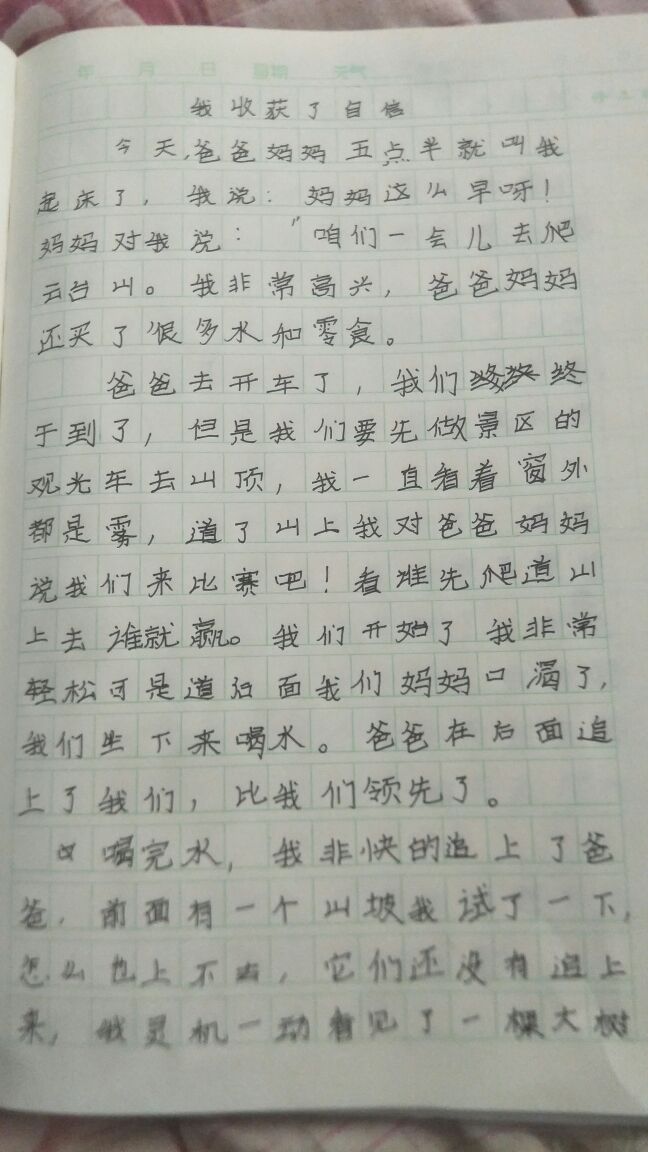 年 月 日 星期 天气
我收获了自信
今天,爸爸妈妈五点半就叫我
起床了，我说：妈妈这么早呀！
妈妈对我说：“咱们一会儿去爬
云台山。我非常高兴，爸爸妈妈
还买了很多水和零食。
爸爸去开车了，我们终
于到了，但是我们要先做景区的
观光车去山顶，我一直看着窗外
都是雾，道了山上我对爸爸妈妈
说我们来比赛吧！看准先爬道山
上去谁就赢。我们开始了我非常
轻松可是道后面我们妈妈口渴了,
我们坐下来喝水。爸爸在后面追
上了我们，比我们领先了。
喝完水，我非快的追上了爸
爸.前面有一个山坡我试了一下,
怎么也上不去，它们还没有追上
来,我灵机一动看见了一棵大树